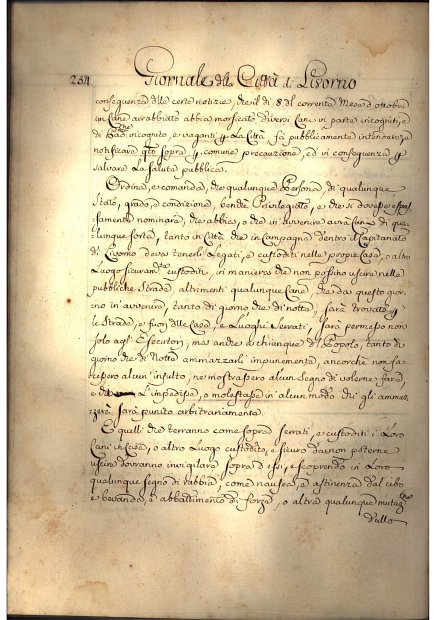 254 Giornale della Città di Livorno
consequenza dlle certe notizie, che il dì 8 del corrente Mese d'ottobre
un Cane arrabbiato abbia morsicato diversi Cani in parte incogniti, e
di Padne incognito, e vaganti p la Città fà pubblicamente intendere, e
notificare qto sopra p comune precauzione, ed in consequenza p
salvare la salute pubblica.
Ordina, e comanda, che qualunque Persona, di qualunque
stato, grado, e condizione, benchè Privilegiato, e che si dovesse espres-
samente nominare, che abbia, o che in avvenire avrà Cane di qua-
lunque sorta, tanto in Città che in Campagna dentro il Capitanato
di Livorno deva tenerli Legati, e custoditi nelle proprie Case, o altro
Luogo sicuramte custoditi, in maniera che non possino uscire nelle
pubbliche strade, altrimenti qualunque Cane, che da questo gior-
no in avvenire, tanto di giorno che di notte, sarà trovato p
le strade, e fuori dlle Case, e Luoghi serrati, sarà permesso non
solo agl' Esecutori, ma anche a chiunque di Popolo, tanto di
giorno che di Notte ammazzarli impunemente, ancorchè non fa-
cessero alcun' insulto, ne mostrassero alcun segno di volerne fare
e L'impedisse, o molestasse in alcun modo chi gli ammaz-
zerà sarà punito arbitrariamente
E quelli che terranno come sopra serrati, e custoditi i Loro
Cani in Casa, o altro Luogo custodito, e sicuro da non poterne
uscire dovranno invigilare sopra d'essi, e scoprendo in Loro
qualunque segno di rabbia, come nausea, e astinenza dal cibo
e bevanda, e abbattimento di forza, o altra qualunque mutazne
dallo